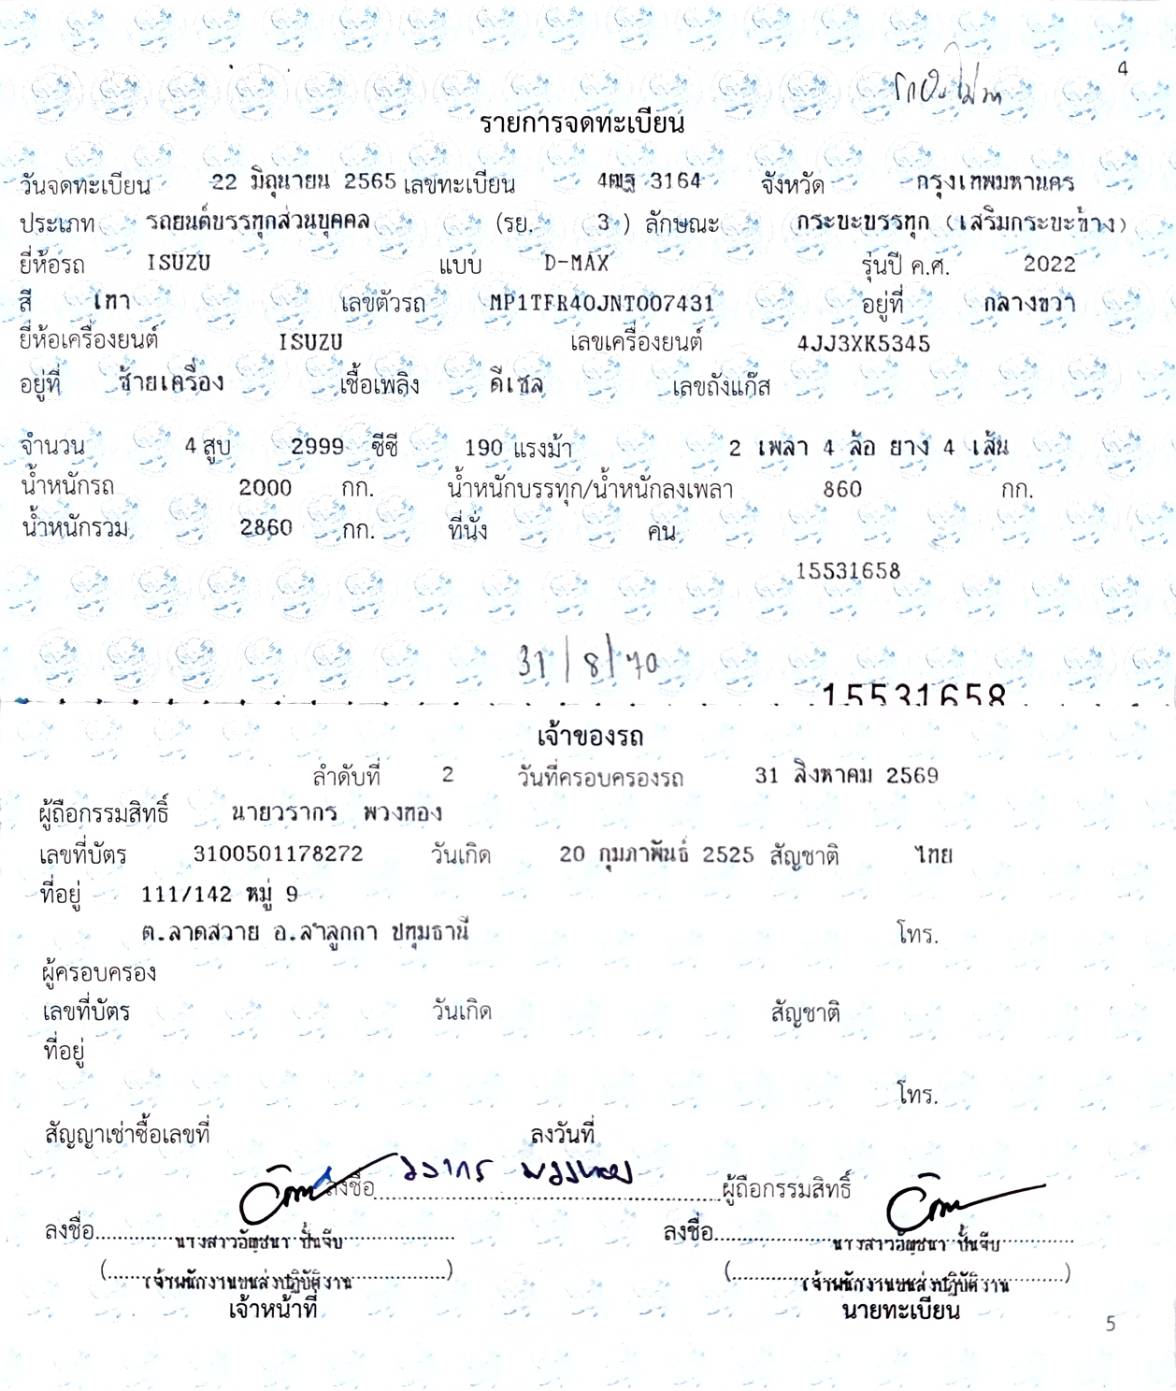 4
รายการจดทะเบียน
วันจดทะเบียน 22 มิถุนายน 2565 เลขทะเบียน 4ฒฐ 3164 จังหวัด กรุงเทพมหานคร
ประเภท รถยนต์บรรทุกส่วนบุคคล (รย. 3 ) ลักษณะ กระบะบรรทุก (เสริมกระบะข้าง)
ยี่ห้อรถ ISUZU แบบ D-MAX รุ่นปี ค.ศ. 2022
สี เทา เลขตัวรถ MP1TFR40JNT007431 อยู่ที่ กลางขวา
ยี่ห้อเครื่องยนต์ ISUZU เลขเครื่องยนต์ 4JJ3XK5345
อยู่ที่ ซ้ายเครื่อง เชื้อเพลิง ดีเซล เลขถังแก๊ส
จำนวน 4 สูบ 2999 ซีซี 190 แรงม้า 2 เพลา 4 ล้อ ยาง 4 เส้น
น้ำหนักรถ 2000 กก. น้ำหนักบรรทุก/น้ำหนักลงเพลา 860 กก.
น้ำหนักรวม 2860 กก. ที่นั่ง คน
15531658
31/8/70
15531658
เจ้าของรถ
ลำดับที่ 2 วันที่ครอบครองรถ 31 สิงหาคม 2569
ผู้ถือกรรมสิทธิ์ นายวรากร พวงทอง
เลขที่บัตร 3100501178272 วันเกิด 20 กุมภาพันธ์ 2525 สัญชาติ ไทย
ที่อยู่ 111/142 หมู่ 9
ต.ลาดสวาย อ.ลำลูกกา ปทุมธานี โทร.
ผู้ครอบครอง
เลขที่บัตร วันเกิด สัญชาติ
ที่อยู่
โทร.
สัญญาเช่าซื้อเลขที่ ลงวันที่
ลงชื่อ วรากร พวงทอง ผู้ถือกรรมสิทธิ์
ลงชื่อ นางสาวอัญชนา ปั้นจีบ ลงชื่อ นางสาวอัญชนา ปั้นจีบ
(เจ้าพนักงานขนส่งปฏิบัติงาน) (เจ้าพนักงานขนส่งปฏิบัติงาน)
เจ้าหน้าที่ นายทะเบียน
5